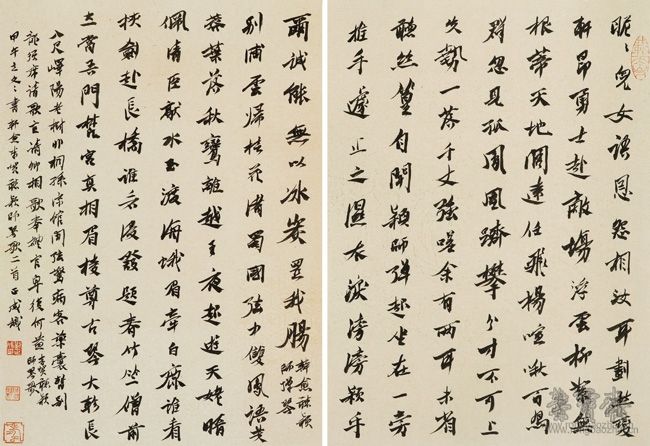 昵〻兒女語恩怨相汝耳劃然變
軒昂勇士赴敵場浮雲柳絮無
根蒂天地闊遠任飛揚喧啾百鳥
群忽見孤鳳凰躋攀分寸不可上
失勢一落千丈強嗟余有兩耳未省
聽絲篁自聞穎師彈起坐在一旁
推手遽止之濕衣淚滂滂穎手
爾誠能無以冰炭置我腸 韓愈聽穎師彈琴
別浦雲歸桂花渚蜀國弦中雙鳳語芙
蓉葉落秋鸞離越王夜起遊天姥暗
佩清臣敲水玉渡海蛾眉牽白鹿誰看
挾劍赴長橋誰看浸髮題春竹竺僧前
立當吾門梵宮真相眉棱尊古琴大軫長
八尺嶧陽老樹非桐孫涼館聞弦驚病客藥囊暫別
龍須席請歌直請卿相歌奉禮官卑復何益 李賀聽穎師琴歌
甲午書韓愈李賀聽穎師琴歌二首